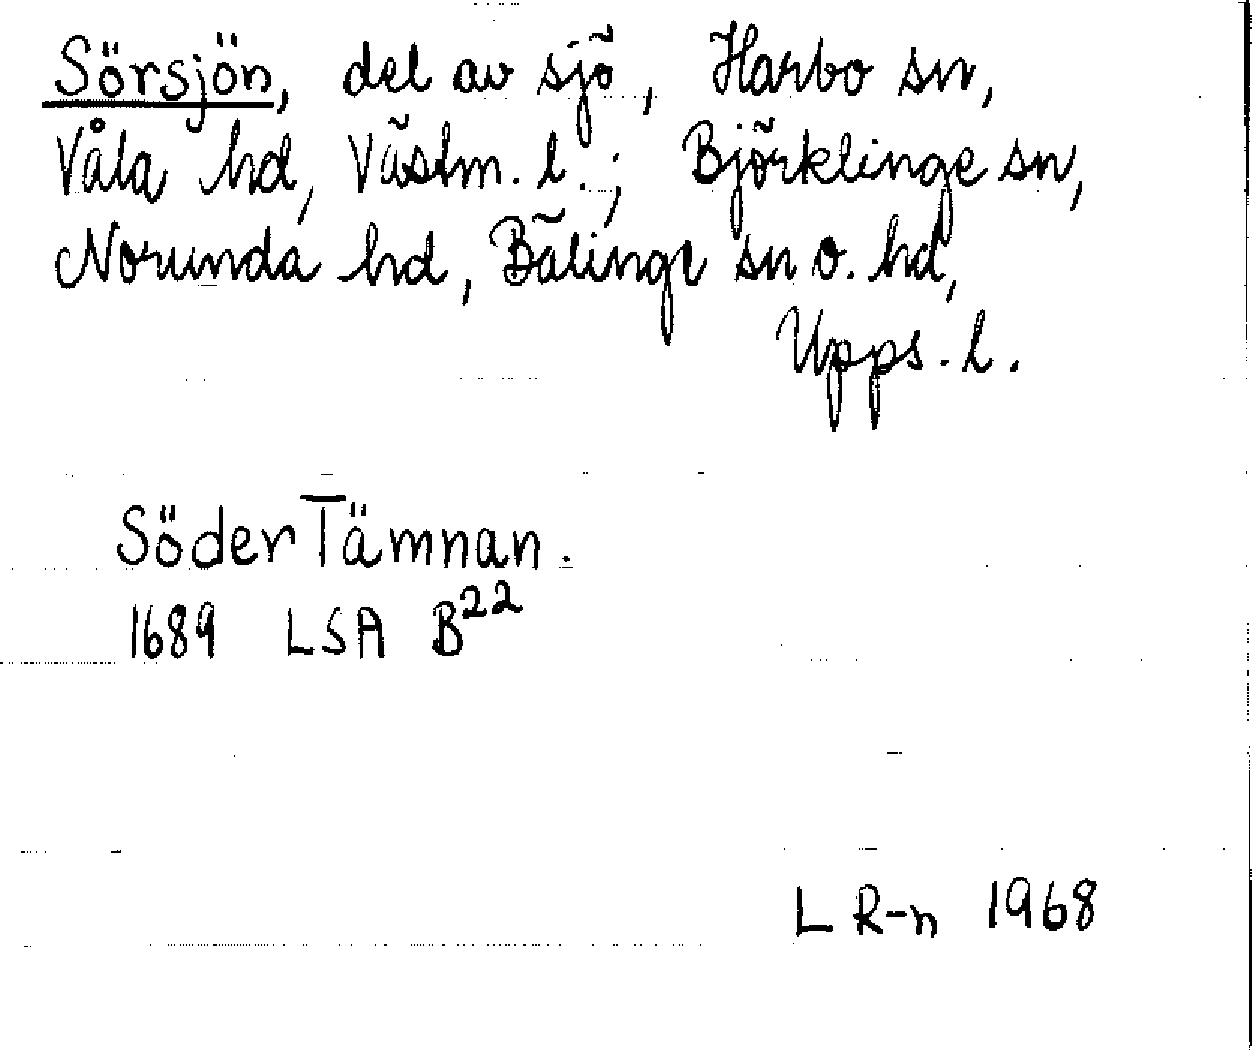 Sörsjön, del av sjö, Harbo sn,
Våla hd, Västm. l.; Björklinge sn,
Norunda hd, Bälinge sn o. hd,
Upps. l.
Söder Tämnan.
1689 LSA B22
L R-n 1968